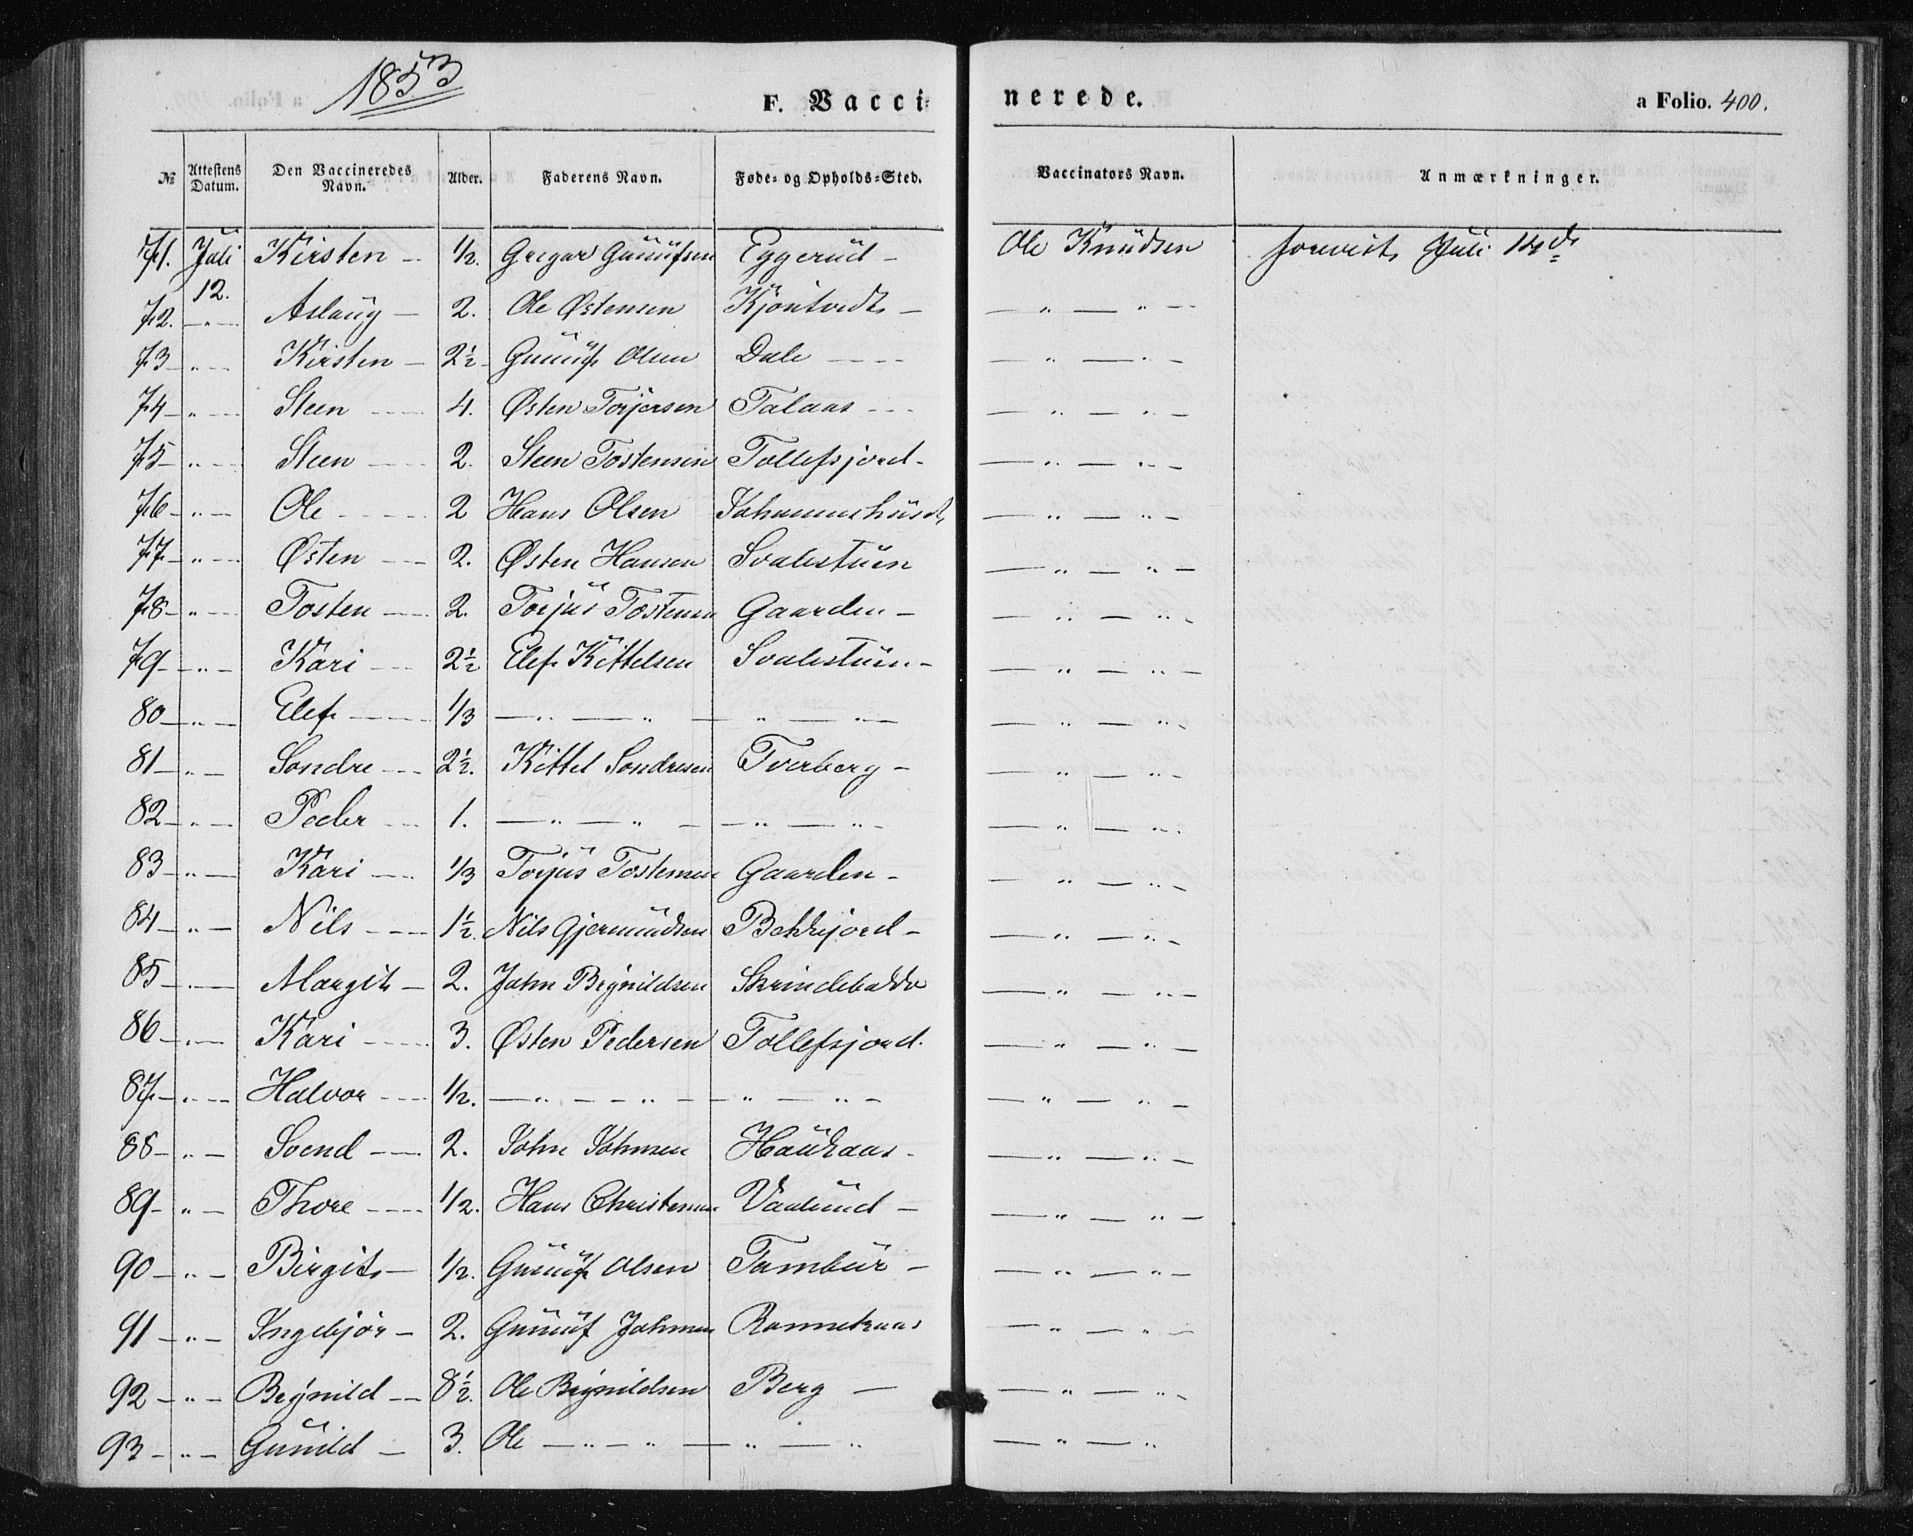 1853
F. Vacci- nerede. a Folio. 400.
№ Attestens Datum. Den Vaccineredes Navn. Alder. Faderens Navn. Føde- og Opholds-Sted. Vaccinators Navn. Anmærkninger.
71. Juli 12. Kirsten - 1/2. Gregar Eggerud - Ole Knudsen forevist Juli 14de
72. - „ - Aslaug - 2. Ole Østensen - „ - „ -
73 - „ - Kirsten - 2½ Gunuf Olsen Dale - - „ - „ -
74 - „ - Steen - 4. Østen Torjersen Talaas - - „ - „ -
75 - „ - Steen - 2. Steen Tostensen Tollefsjord - - „ - „ -
76 - „ - Ole - 2 Hans Olsen - „ - „ -
77 - „ - Østen - 2. Østen Hansen Svalestuen - „ - „ -
78 - „ - Tosten - 2. Torjus Tostensen Gaarden - - „ - „ -
79 - „ - Kari - 2½ Elef Kittelsen Svalestuen - - „ - „ -
80 - „ - Elef - 1/3 - „ - „ - „ - „ - - „ - „ -
81 - „ - Sondre - 2½. Kittel Sondresen Tverberg - - „ - „ -
82 - „ - Peder - 1. - „ - „ - - „ - „ - - „ - „ -
83 - „ - Kari - 1/3 Torjus Tostensen Gaarden - - „ - „ -
84 - „ - Nils - 1½. Nils Gjermundsen Bekkjord - - „ - „ -
85 - „ - Margit - 2. John Brynildsen Skrindebakke - „ - „ -
86 - „ - Kari - 3. Østen Pedersen Tollefsjord. - „ - „ -
87 - „ - Halvor - 1/2. - „ - „ - - „ - „ - - „ - „ -
88 - „ - Svend - 2. John Johnsen Haukaas - - „ - „ -
89 - „ - Thore - 1/2. Hans Christensen Vaalund - - „ - „ -
90 - „ - Birgit - 1/2. Gunuf Olsen Tambur - - „ - „ -
91 - „ - Ingebjør - 2. Gunuf Johnsen - „ - „ -
92 - „ - Brynild - 8½. Ole Brynildsen Berg - - „ - „ -
93 - „ - Gunild - 3. Ole - „ - „ - „ - „ - „ - „